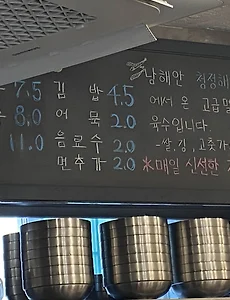 7.5 김 밥 4.5
8.0 어 묵 2.0
11.0 음료수 2.0
면추가 2.0
남해안 청정해
에서 온 고급멸
육수입니다
-쌀, 김, 고춧가
*매일 신선한